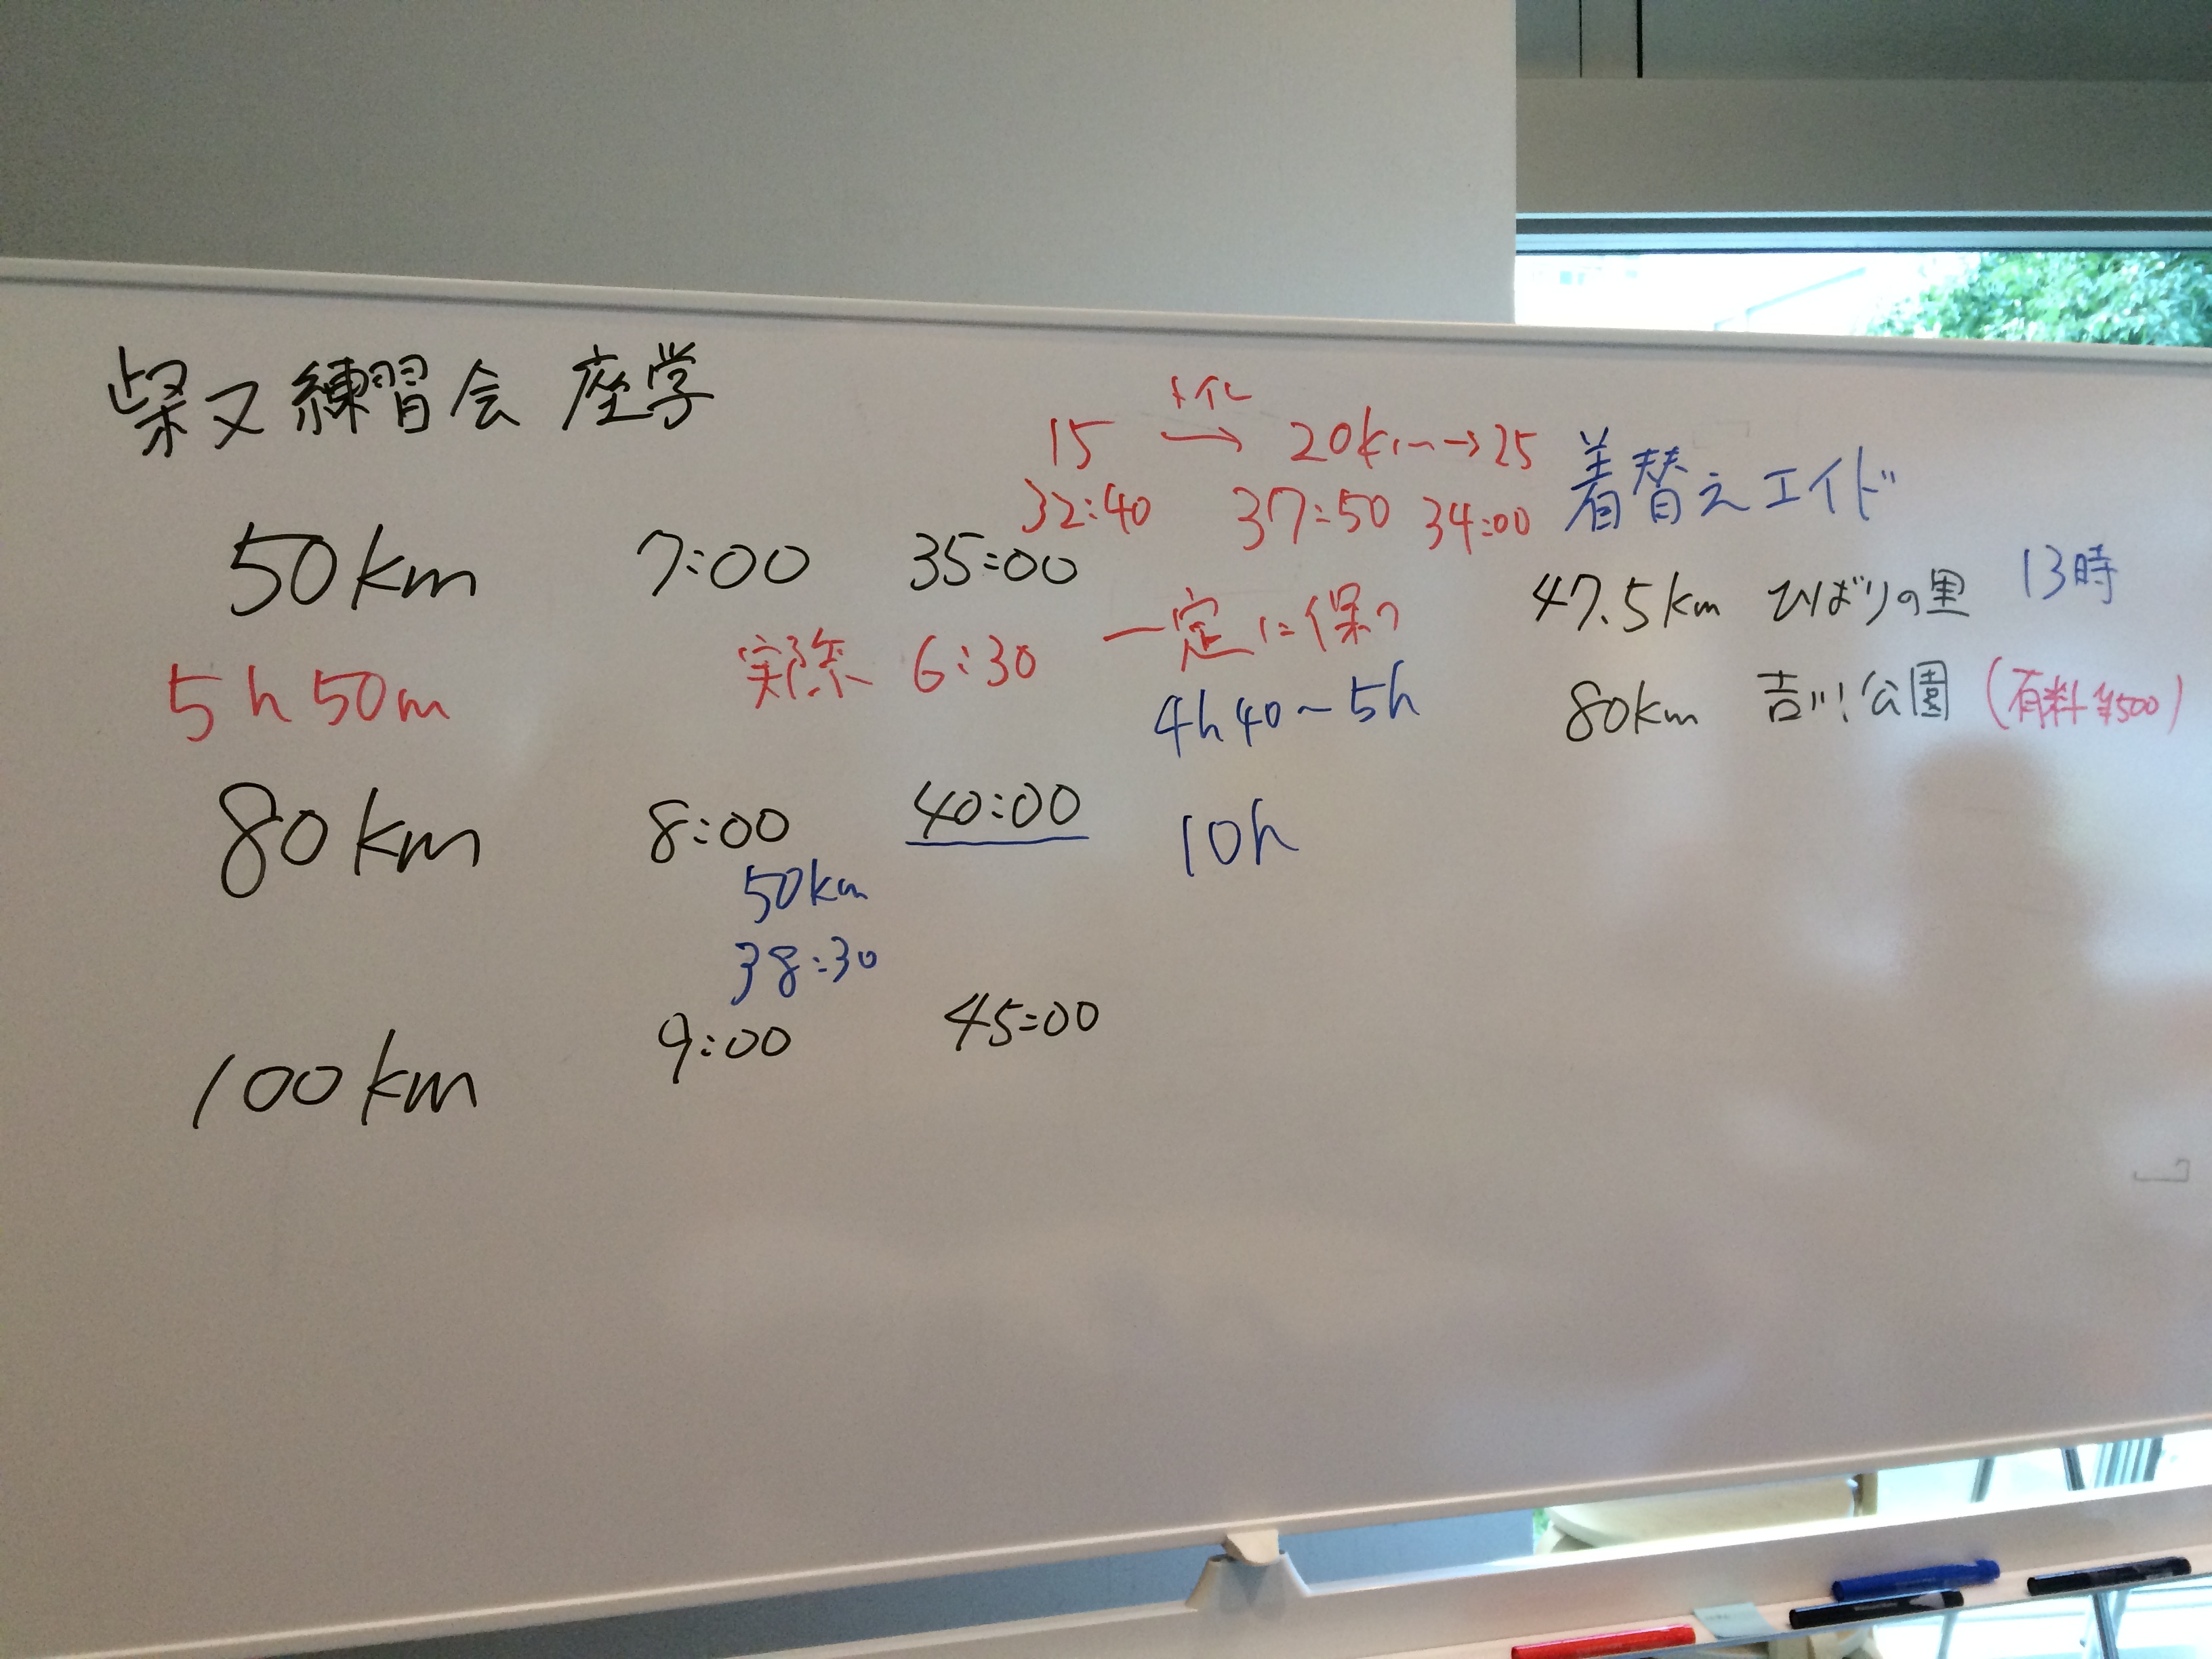 柴又練習会 座学
トイレ
15 → 20km → 25
32:40 37:50 34:00
着替えエイド
50km 7:00 35:00
5h50m
実際 6:30 一定に保つ
4h40～5h
47.5km ひばりの里 13時
80km 吉川公園 (有料¥500)
80km 8:00 40:00 10h
50km
38:30
100km 9:00 45:00